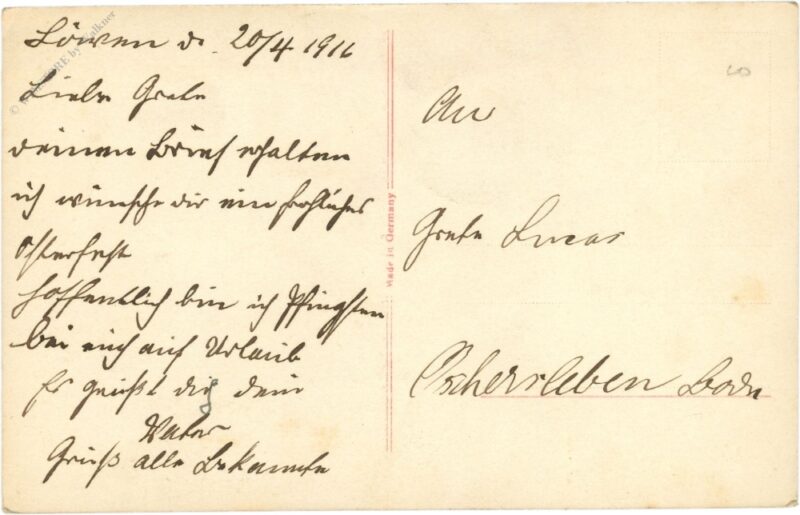 Löwen d. 20/4 1916
Liebe Grete
deinen Brief erhalten
ich wünsche dir ein frohliches
Osterfest
Hoffentlich bin ich Pfingsten
bei euch auf Urlaub
Es grüßt dig dein
Vater
Gruß alle Bekannte
An
Grete Lucas
Oschersleben Bode
Made in Germany